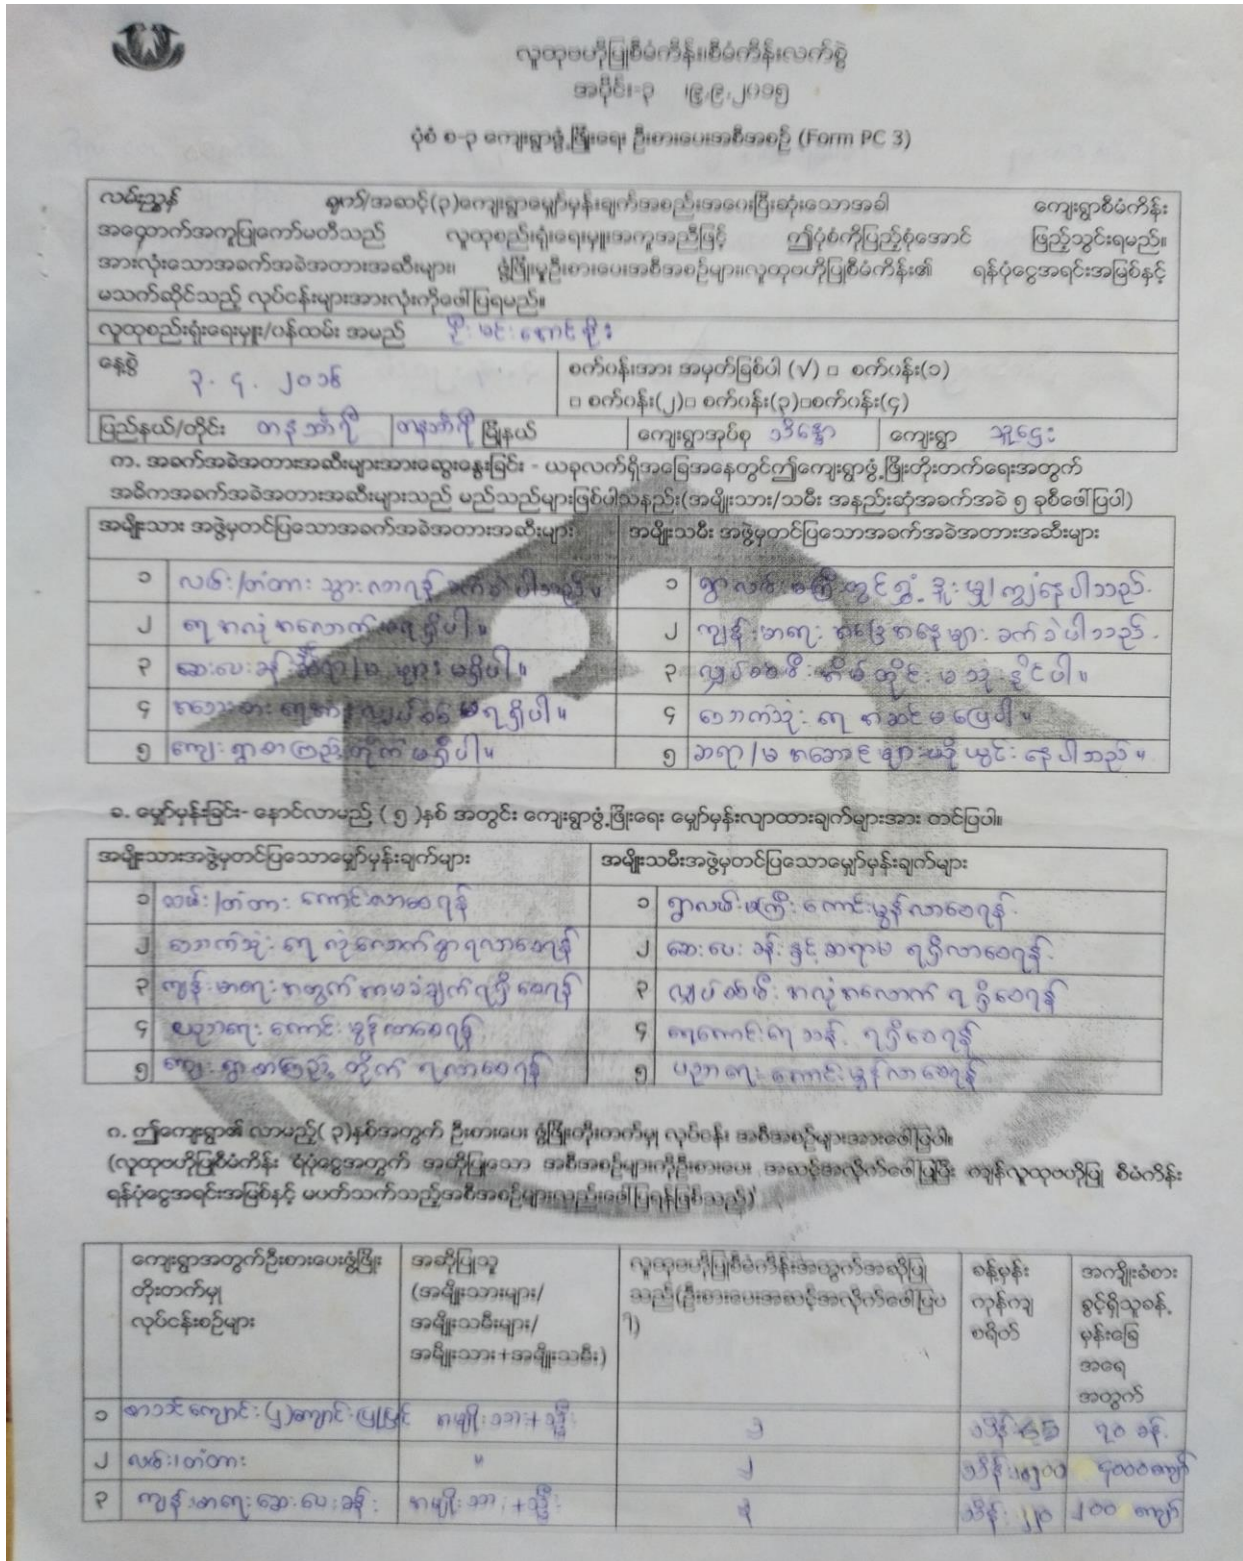 လူထုဗဟိုပြုစီမံကိန်း၊စီမံကိန်းလက်စွဲ
အပိုင်း-၃ ၊၉.၉.၂၀၁၅
ပုံစံ စ-၃ ကျေးရွာဖွံ့ဖြိုးရေး ဦးစားပေးအစီအစဉ် (Form PC 3)
လမ်းညွှန် ချက်/အဆင့်(၃)ကျေးရွာမျှော်မှန်းချက်အစည်းအဝေးပြီးဆုံးသောအခါ ကျေးရွာစီမံကိန်း
အထောက်အကူပြုကော်မတီသည် လူထုစည်းရုံးရေးမှူးအကူအညီဖြင့် ဤပုံစံကိုပြည့်စုံအောင် ဖြည့်သွင်းရမည်။
အားလုံးသောအခက်အခဲအတားအဆီးများ၊ ဖွံ့ဖြိုးမှုဦးစားပေးအစီအစဉ်များ၊လူထုဗဟိုပြုစီမံကိန်း၏ ရန်ပုံငွေအရင်းအမြစ်နှင့်
မသက်ဆိုင်သည့် လုပ်ငန်းများအားလုံးကိုဖော်ပြရမည်။
လူထုစည်းရုံးရေးမှူး/ဝန်ထမ်း အမည် ဦးမင်းအောင်စိုး
နေ့စွဲ ၃.၄.၂၀၁၆
စက်ဝန်းအား အမှတ်ခြစ်ပါ (√) □ စက်ဝန်း(၁)
□ စက်ဝန်း(၂)□ စက်ဝန်း(၃)□စက်ဝန်း(၄)
ပြည်နယ်/တိုင်း တနင်္သာရီ တနင်္သာရီ မြို့နယ် ကျေးရွာအုပ်စု ကျေးရွာ သူဌေး
က. အခက်အခဲအတားအဆီးများအားဆွေးနွေးခြင်း - ယခုလက်ရှိအခြေအနေတွင်ဤကျေးရွာဖွံ့ဖြိုးတိုးတက်ရေးအတွက်
အဓိကအခက်အခဲအတားအဆီးများသည် မည်သည်များဖြစ်ပါသနည်း(အမျိုးသား/သမီး အနည်းဆုံးအခက်အခဲ ၅ ခုစီဖော်ပြပါ)
အမျိုးသား အဖွဲ့မှတင်ပြသောအခက်အခဲအတားအဆီးများ အမျိုးသမီး အဖွဲ့မှတင်ပြသောအခက်အခဲအတားအဆီးများ
၁ လမ်း/တံတား သွားလာရန် ခက်ခဲပါသည်။ ၁ ရွာလမ်းမကြီးတွင် ကျွံနေပါသည်။
၂ ရေ အလုံအလောက် မရရှိပါ။ ၂ ကျန်းမာရေး အခြေအနေများ ခက်ခဲပါသည်။
၃ ဆေးပေးခန်း ဆရာ/မ များ မရှိပါ။ ၃ လျှပ်စစ်မီး အိမ်တိုင်း မသုံးနိုင်ပါ။
၄ လျှပ်စစ် မရရှိပါ။ ၄ သောက်သုံးရေ အဆင်မပြေပါ။
၅ ကျေးရွာစာကြည့်တိုက် မရှိပါ။ ၅ ဆရာ/မ အဆောင်များ ယိုယွင်းနေပါသည်။
ခ. မျှော်မှန်းခြင်း- နောင်လာမည့် ( ၅ )နှစ် အတွင်း ကျေးရွာဖွံ့ဖြိုးရေး မျှော်မှန်းလျာထားချက်များအား တင်ပြပါ။
အမျိုးသားအဖွဲ့မှတင်ပြသောမျှော်မှန်းချက်များ အမျိုးသမီးအဖွဲ့မှတင်ပြသောမျှော်မှန်းချက်များ
၁ လမ်း/တံတား ကောင်းလာစေရန် ၁ ရွာလမ်းမကြီး ကောင်းမွန်လာစေရန်
၂ သောက်သုံးရေ လုံလောက်စွာ ရလာစေရန် ၂ ဆေးပေးခန်းနှင့် ဆရာမ ရရှိလာစေရန်
၃ ကျန်းမာရေးအတွက် အာမခံချက်ရရှိစေရန် ၃ လျှပ်စစ်မီး အလုံအလောက် ရရှိစေရန်
၄ ပညာရေး ကောင်းမွန်လာစေရန် ၄ ရေကောင်းရေသန့် ရရှိစေရန်
၅ ကျေးရွာစာကြည့်တိုက် ရလာစေရန် ၅ ပညာရေး ကောင်းမွန်လာစေရန်
ဂ. ဤကျေးရွာ၏ လာမည့်( ၃)နှစ်အတွက် ဦးစားပေး ဖွံ့ဖြိုးတိုးတက်မှု လုပ်ငန်း အစီအစဉ်များအားဖော်ပြပါ။
(လူထုဗဟိုပြုစီမံကိန်း ရံပုံငွေအတွက် အဆိုပြုသော အစီအစဉ်များကိုဦးစားပေး အဆင့်အလိုက်ဖော်ပြပြီး ကျန်လူထုဗဟိုပြု စီမံကိန်း
ရန်ပုံငွေအရင်းအမြစ်နှင့် မပတ်သက်သည့်အစီအစဉ်များလည်းဖော်ပြရန်ဖြစ်သည်)
ကျေးရွာအတွက်ဦးစားပေးဖွံ့ဖြိုး
တိုးတက်မှု
လုပ်ငန်းစဉ်များ
အဆိုပြုသူ
(အမျိုးသားများ/
အမျိုးသမီးများ/
အမျိုးသား+အမျိုးသမီး)
လူထုဗဟိုပြုစီမံကိန်းအတွက်အဆိုပြု
သည်(ဦးစားပေးအဆင့်အလိုက်ဖော်ပြပ
ါ)
ခန့်မှန်း
ကုန်ကျ
စရိတ်
အကျိုးခံစား
ခွင့်ရှိသူခန့်
မှန်းခြေ
အရေ
အတွက်
၁ စာသင်ကျောင်း(၂)ကျောင်းပြုပြင် အမျိုးသား+သမီး ၁ ၇၀ ခန့်
၂ လမ်း၊တံတား " ၂
၃ ကျန်းမာရေးဆေးပေးခန်း အမျိုးသား+သမီး ၃